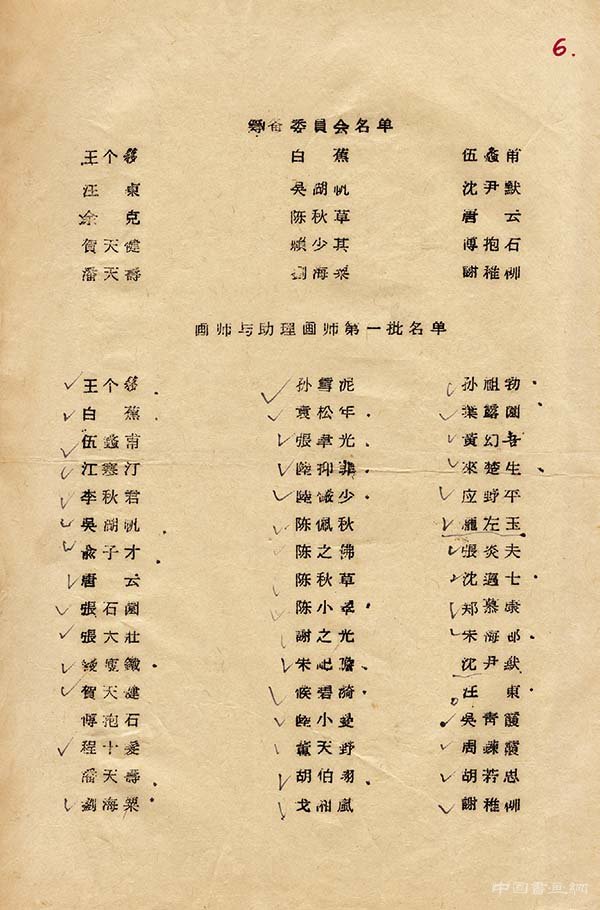 6.
籌备委員会名单
王个簃 白蕉 伍蠡甫
汪東 吳湖帆 沈尹默
余克 陈秋草 唐云
賀天健 賴少其 傅抱石
潘天壽 劉海粟 謝稚柳
画师与助理画师第一批名单
王个簃 孙雪泥 孙祖勃
白蕉 袁松年 葉露園
伍蠡甫 張聿光 黃幻吾
江寒汀 陸抑非 來楚生
李秋君 陸儼少 应野平
吳湖帆 陈佩秋 龐左玉
俞子才 陈之佛 張炎夫
唐云 陈秋草 沈邁士
張石園 陈小翠 郑慕康
張大壯 謝之光 朱梅邨
錢瘦鐵 朱屺瞻 沈尹默
賀天健 侯碧漪 汪東
傅抱石 陸小曼 吳青霞
程十髮 董天野 周鍊霞
潘天壽 胡伯翔 胡若思
劉海粟 戈湘嵐 謝稚柳
中国書画網